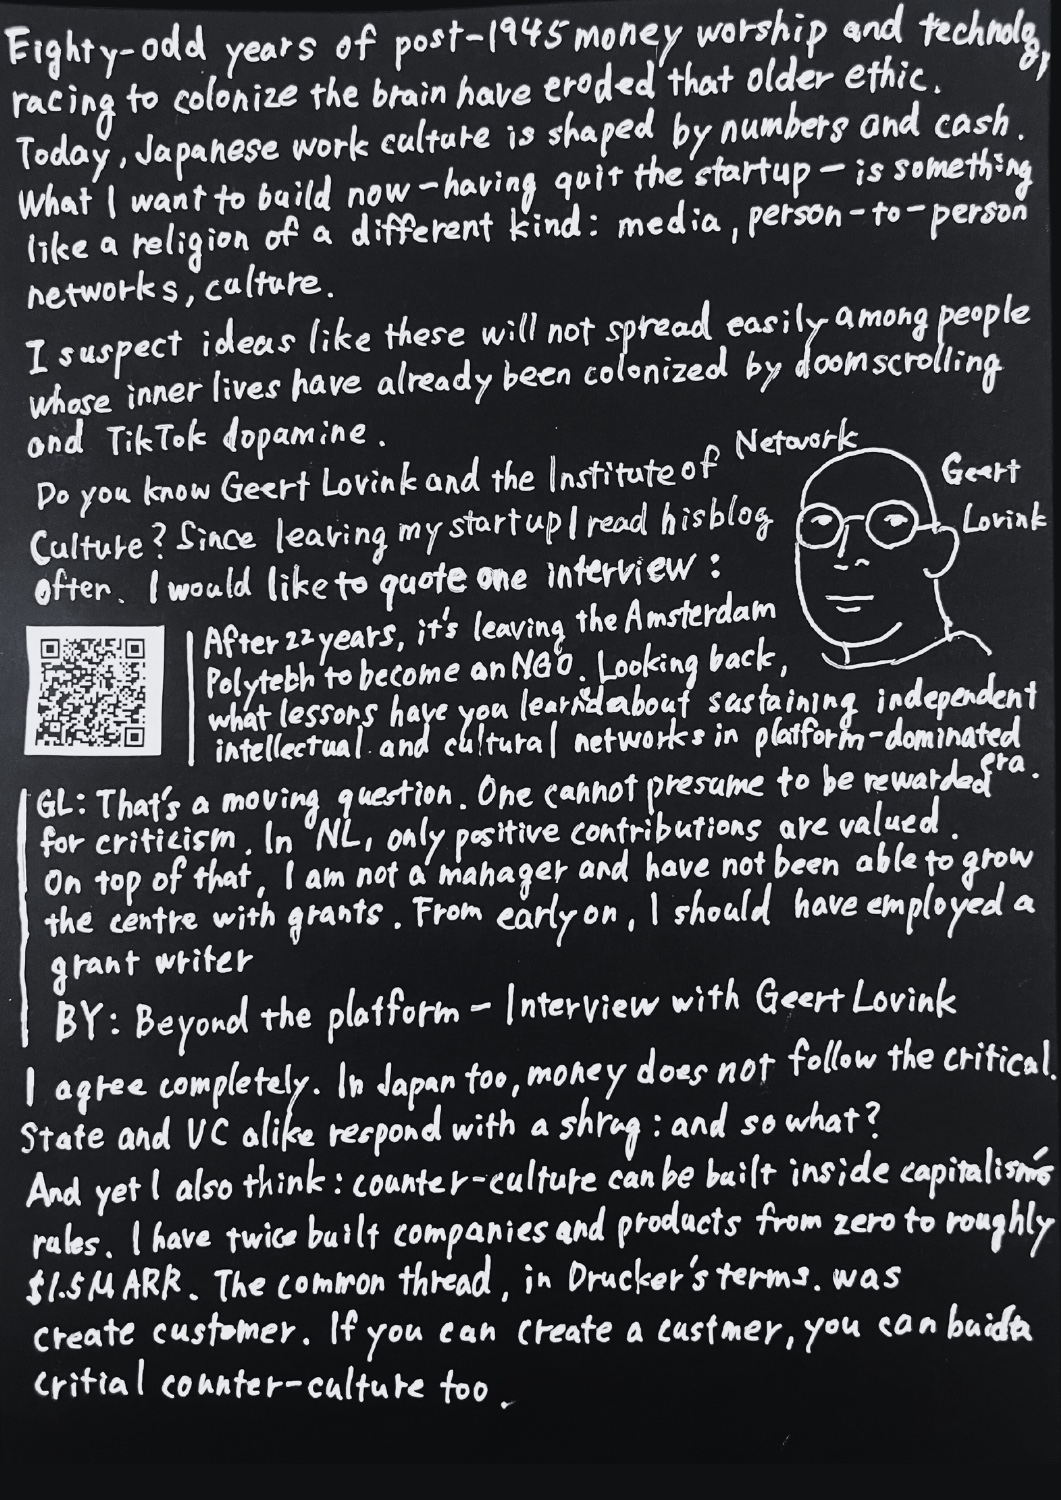 Eighty-odd years of post-1945 money worship and technology,
racing to colonize the brain have eroded that older ethic.
Today, Japanese work culture is shaped by numbers and cash.
What I want to build now - having quit the startup - is something
like a religion of a different kind: media, person-to-person
networks, culture.
I suspect ideas like these will not spread easily among people
whose inner lives have already been colonized by doomscrolling
and TikTok dopamine.
Do you know Geert Lovink and the Institute of Network
Culture? Since leaving my startup I read his blog
often. I would like to quote one interview:
Geert
Lovink
After 22 years, it's leaving the Amsterdam
Polytebh to become an NGO. Looking back,
what lessons have you learnd about sustaining independent
intellectual and cultural networks in platform-dominated
era.
GL: That's a moving question. One cannot presume to be rewarded
for criticism. In NL, only positive contributions are valued.
On top of that, I am not a manager and have not been able to grow
the centre with grants. From early on, I should have employed a
grant writer
BY: Beyond the platform - Interview with Geert Lovink
I agree completely. In Japan too, money does not follow the critical.
State and VC alike respond with a shrug: and so what?
And yet I also think: counter-culture can be built inside capitalism's
rules. I have twice built companies and products from zero to roughly
$1.5M ARR. The common thread, in Drucker's terms. was
create customer. If you can create a custmer, you can build a
critial counter-culture too.